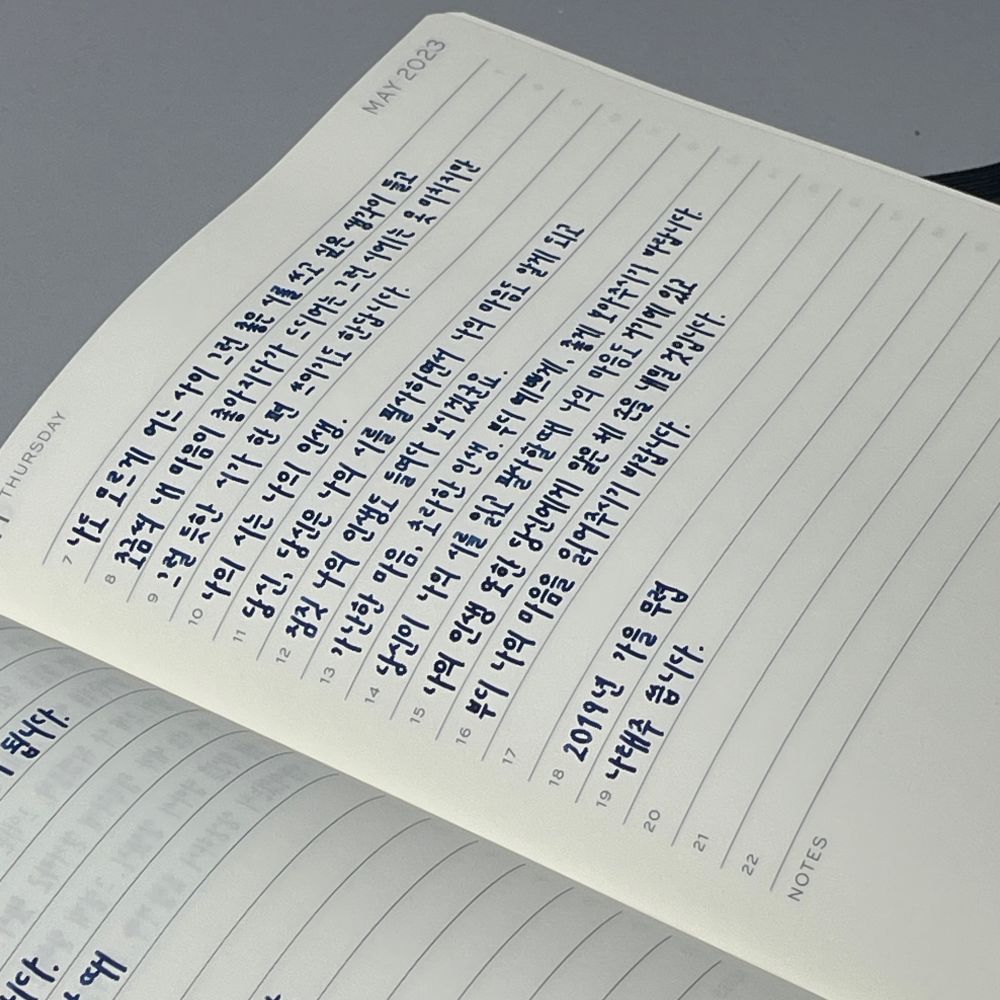 MAY 2023
THURSDAY
7 나도 모르게 어느 사이 그런 좋은 시를 쓰고 싶은 생각이 들고
8 조금씩 내 마음이 좋아지다가 드디어는 그런 시에는 못 미치지만
9 그럴 듯한 시가 한 편 쓰이기도 한답니다.
10 나의 시는 나의 인생.
11 당신, 당신은 나의 시를 필사하면서 나의 마음도 알게 되고
12 짐짓 나의 인생도 들여다 보시겠군요.
13 가난한 마음, 초라한 인생. 부디 예쁘게, 좋게 보아주시기 바랍니다.
14 당신이 나의 시를 읽고 필사할 때 나의 마음도 거기에 있고
15 나의 인생 또한 당신에게 알은 체 손을 내밀 것입니다.
16 부디 나의 마음을 읽어주시기 바랍니다.
17
18 2019년 가을 무렵
19 나태주 씁니다.
20
21
22
NOTES
됩니다.
니다.
때